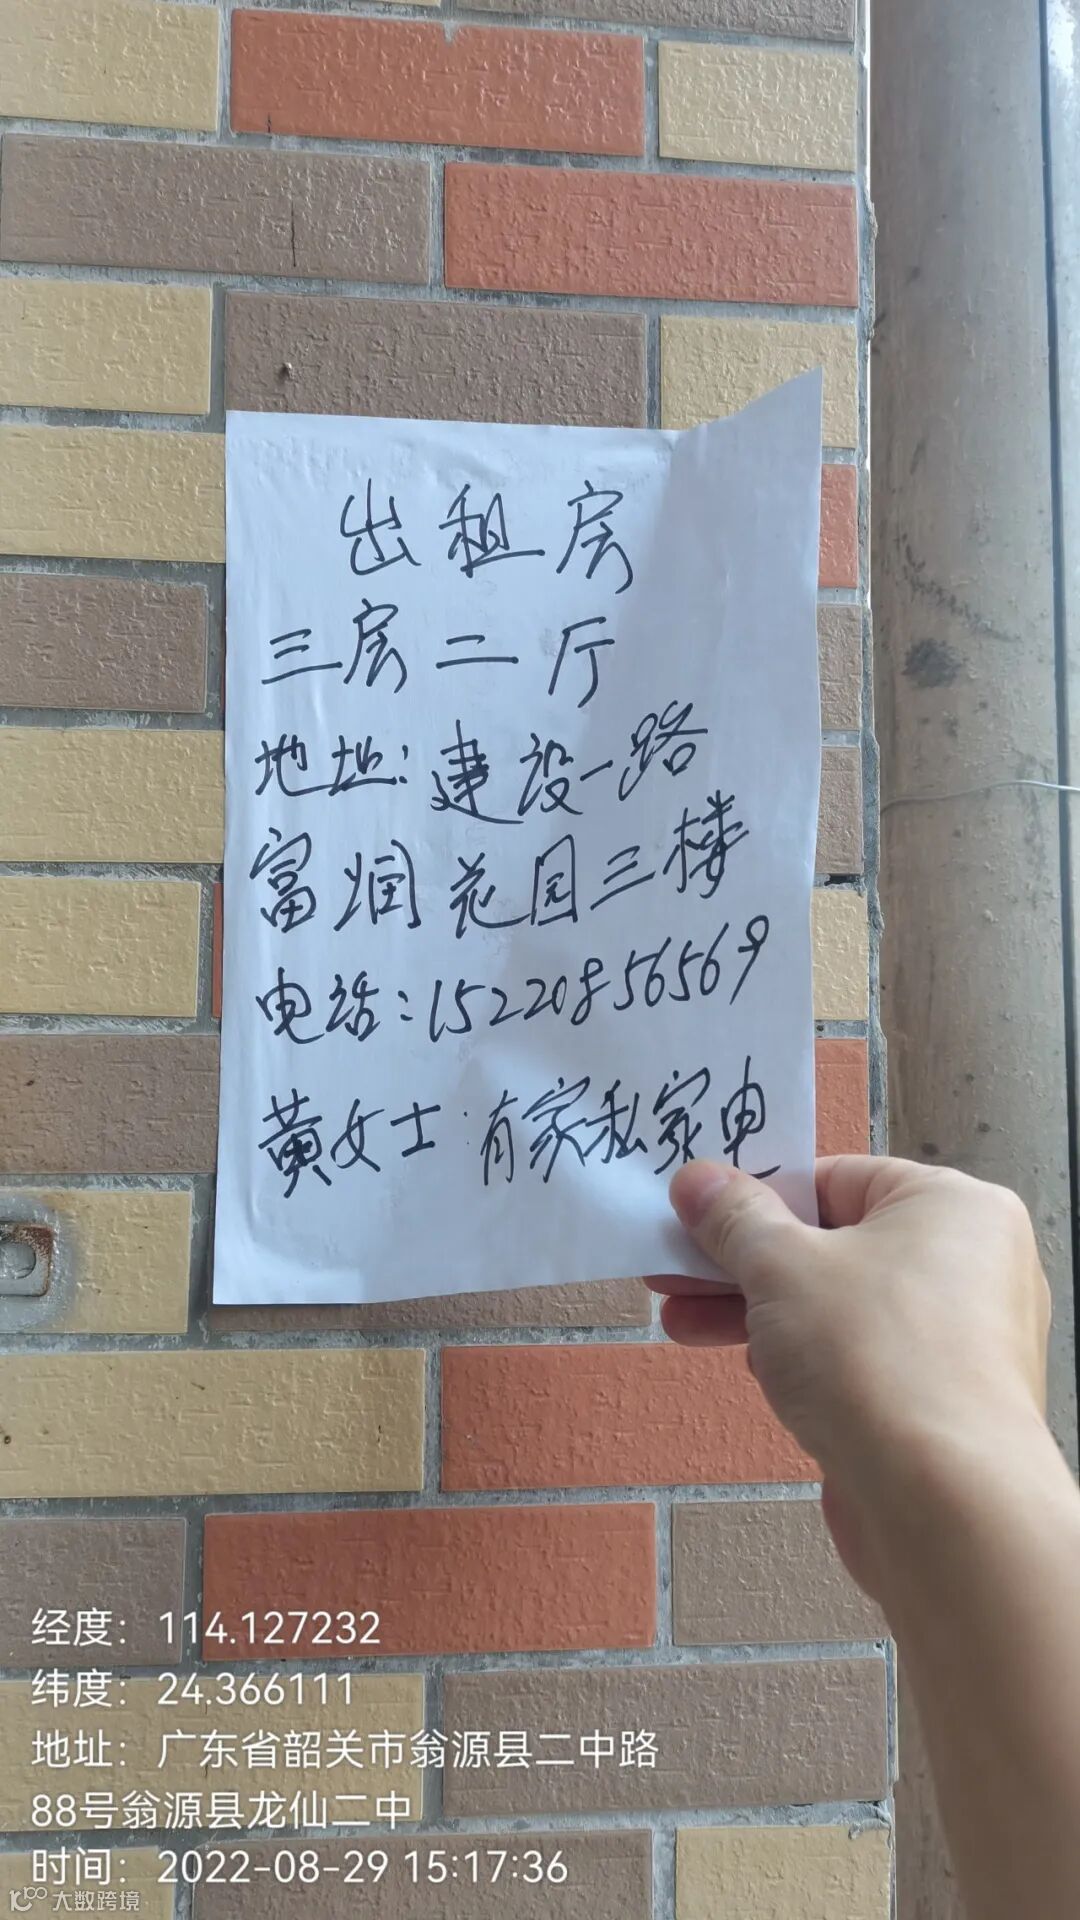 出租房
三房二厅
地址：建设一路
富润花园三楼
电话：15220856569
黄女士：有家私家电
经度：114.127232
纬度：24.366111
地址：广东省韶关市翁源县二中路
88号翁源县龙仙二中
时间：2022-08-29 15:17:36
大数跨境